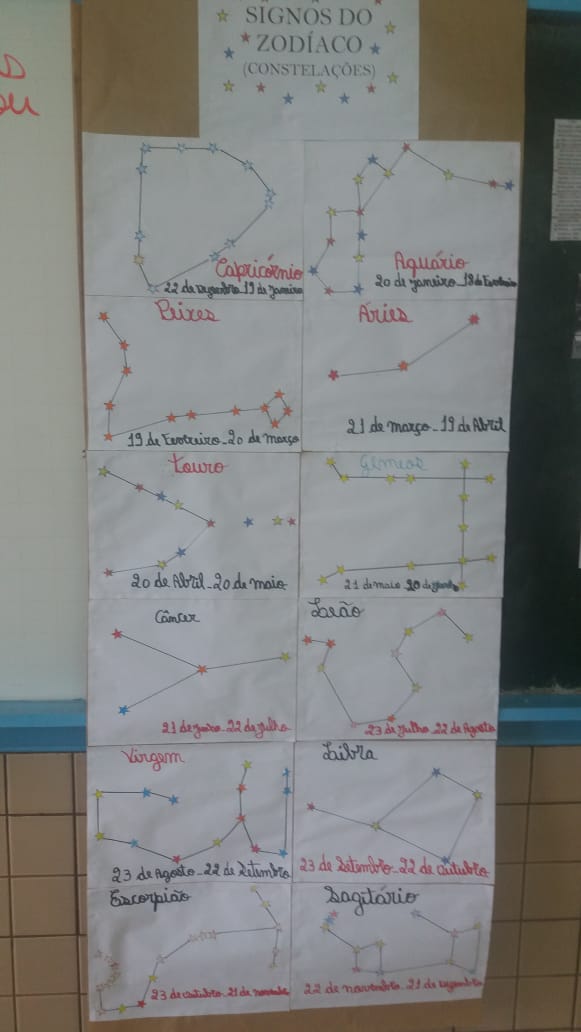 SIGNOS DO
ZODÍACO
(CONSTELAÇÕES)
Capricórnio
22 de Dezembro_19 de Janeiro
Aquário
20 de Janeiro_18 de Fevereiro
Peixes
19 de Fevereiro_20 de março
Áries
21 de março_19 de Abril
Touro
20 de Abril_20 de maio
Gêmeos
21 de maio_20 de Junho
Câncer
21 de Junho_22 de Julho
Leão
23 de Julho_22 de Agosto
Virgem
23 de Agosto_22 de Setembro
Libra
23 de Setembro_22 de Outubro
Escorpião
23 de outubro_21 de novembro
Sagitário
22 de novembro_21 de Dezembro